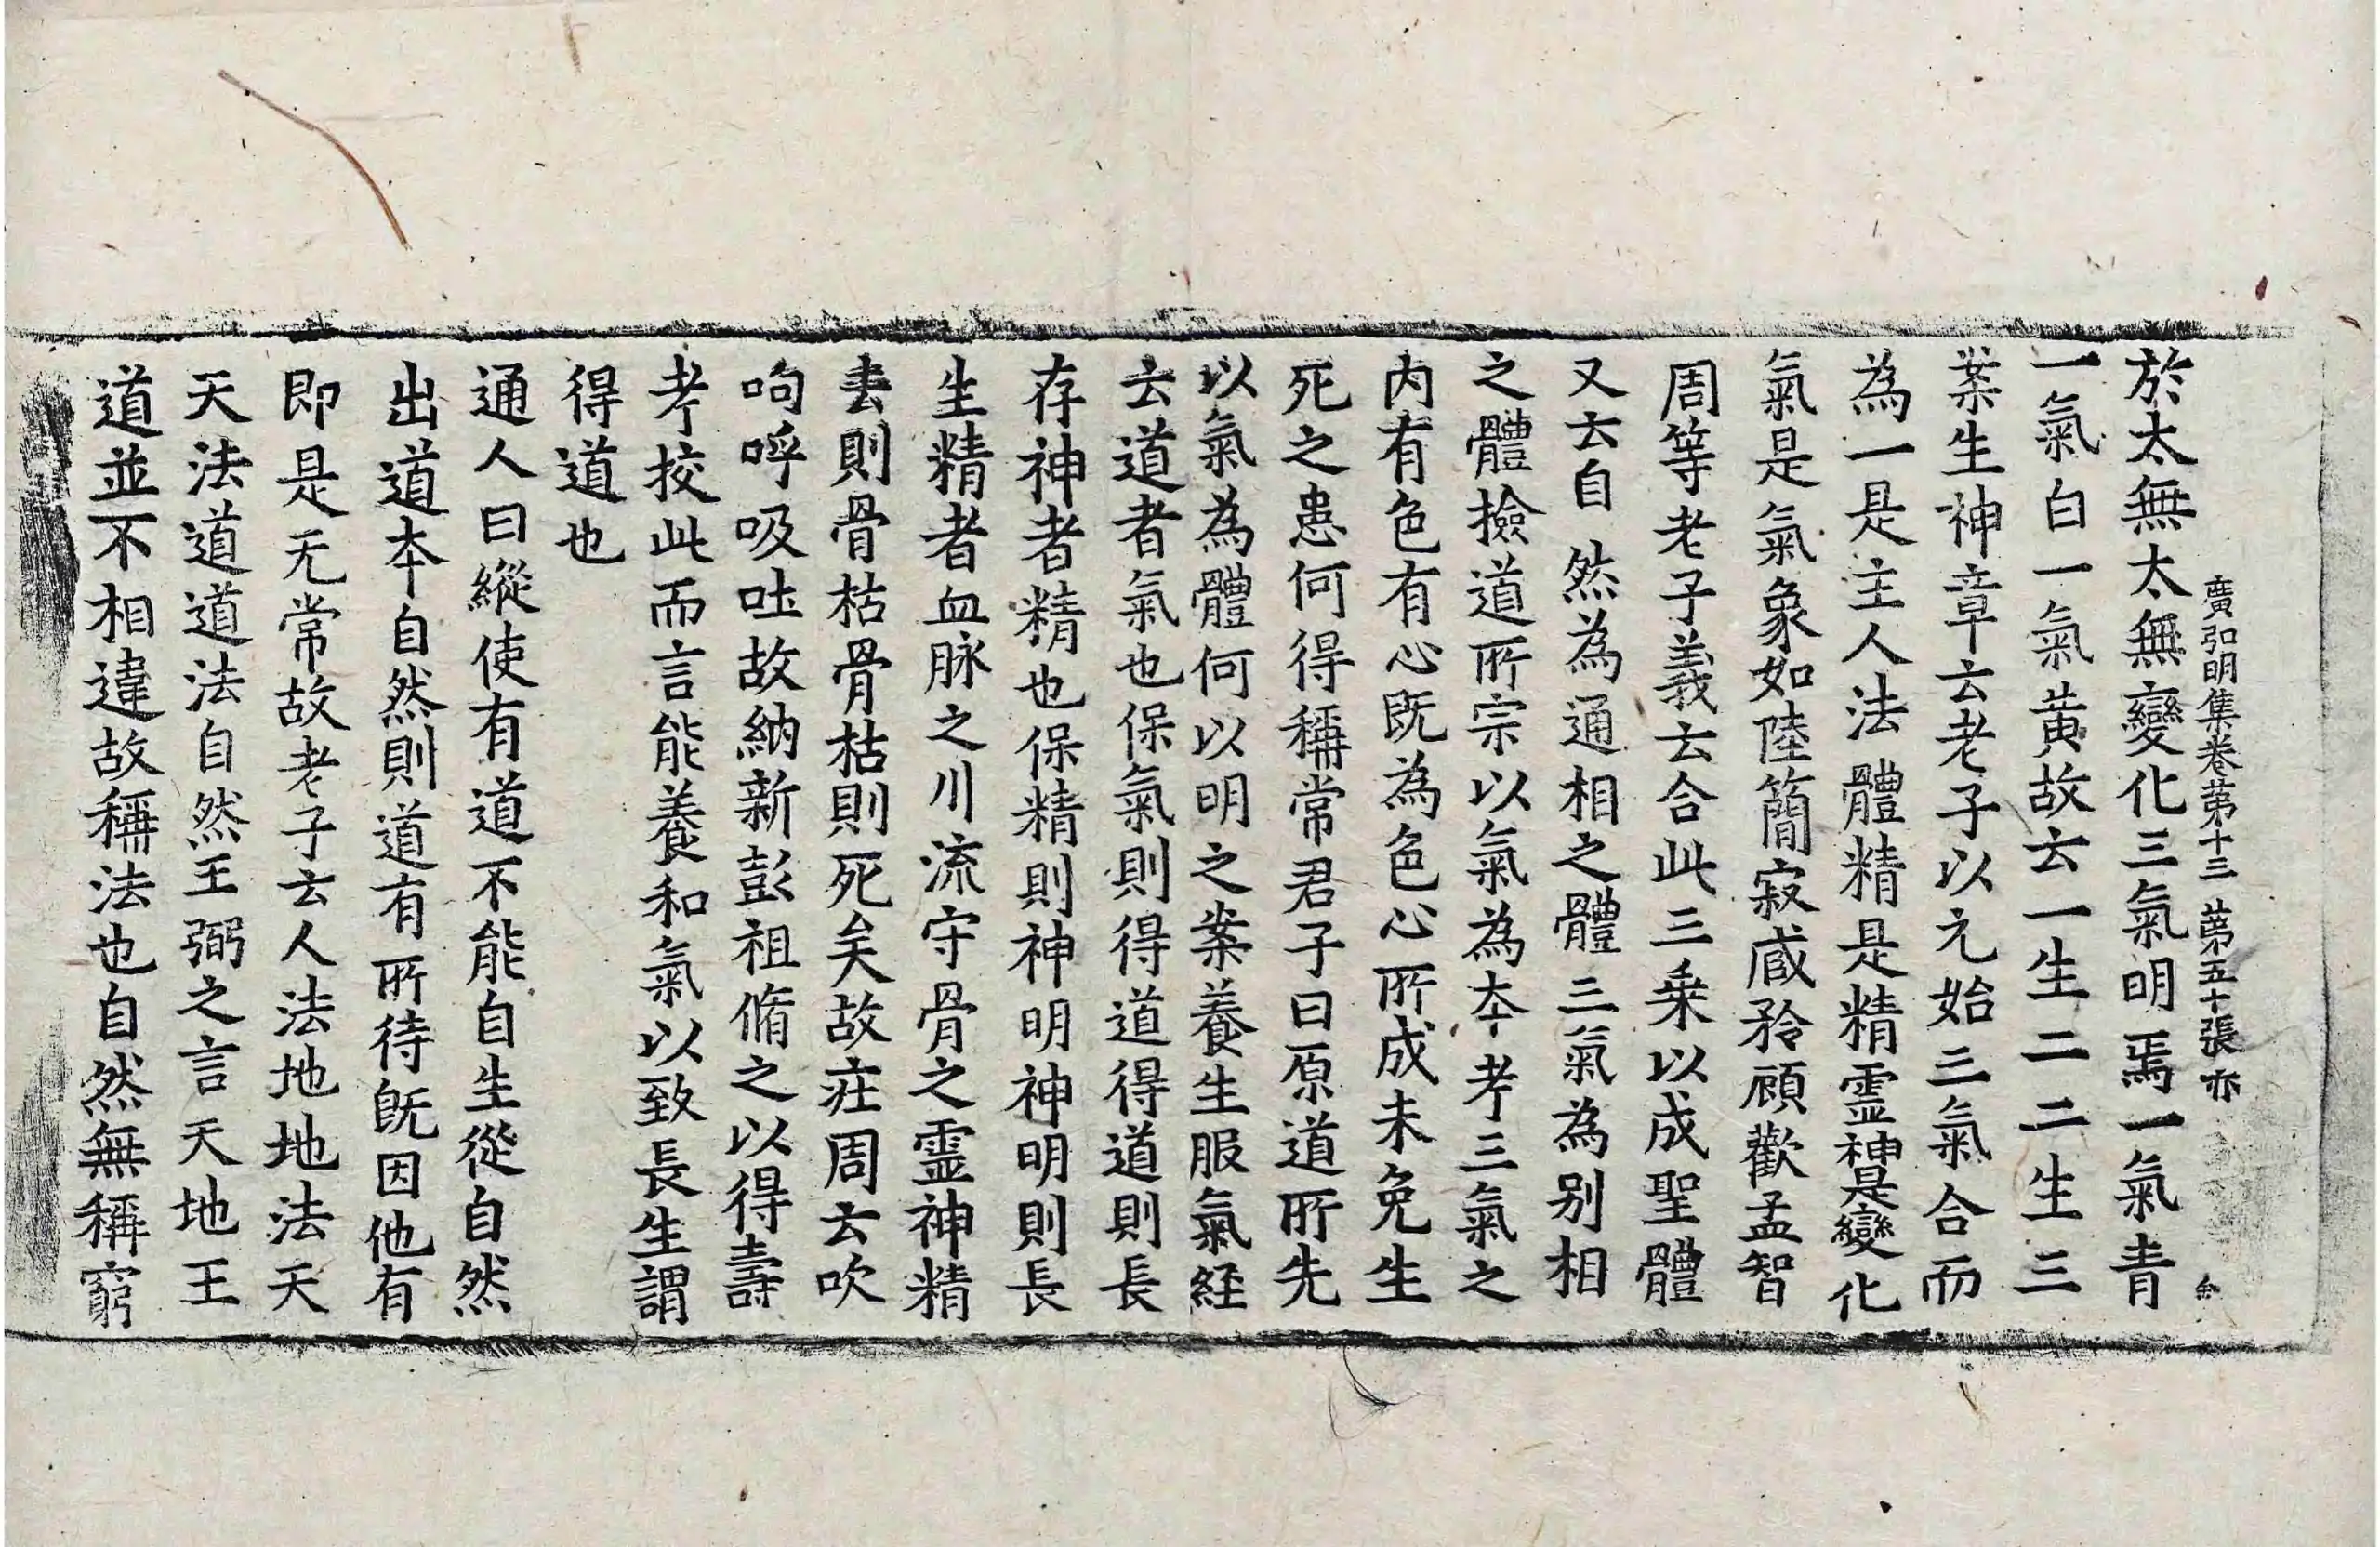 廣弘明集卷第十三 第五十張 亦
於太無太無變化三氣明焉一氣青
一氣白一氣黃故云一生二二生三
案生神章云老子以元始三氣合而
為一是主人法體精是精霊神是變化
氣是氣象如陸簡寂臧矜顧歡孟智
周等老子義云合此三乗以成聖體
又云自然為通相之體三氣為別相
之體撿道所宗以氣為本考三氣之
内有色有心既為色心所成未免生
死之患何得稱常君子曰原道所先
以氣為體何以明之案養生服氣経
云道者氣也保氣則得道得道則長
存神者精也保精則神明神明則長
生精者血脉之川流守骨之霊神精
去則骨枯骨枯則死矣故莊周云吹
呴呼吸吐故納新彭祖脩之以得壽
考挍此而言能養和氣以致長生謂
得道也
通人曰縱使有道不能自生從自然
出道本自然則道有所待既因他有
即是无常故老子云人法地地法天
天法道道法自然王弼之言天地王
道並不相違故稱法也自然無稱窮